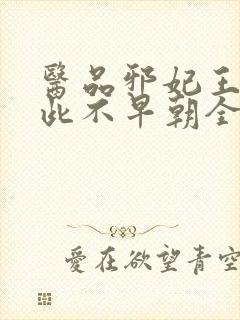 醫品邪妃王
此不早朝全
愛在欲望青空